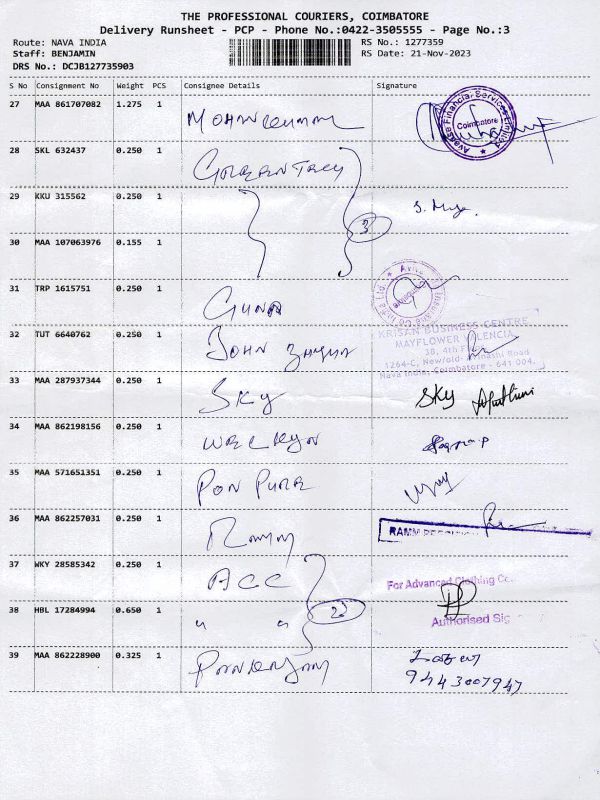 THE PROFESSIONAL COURIERS, COIMBATORE
Delivery Runsheet - PCP - Phone No.:0422-3505555 - Page No.:3
Route: NAVA INDIA RS No.: 1277359
Staff: BENJAMIN RS Date: 21-Nov-2023
DRS No.: DCJB127735903
S No Consignment No Weight PCS Consignee Details Signature
27 MAA 861707082 1.275 1
Avanse Financial Services Limited
Coimbatore
28 SKL 632437 0.250 1
29 KKU 315562 0.250 1 3
30 MAA 107063976 0.155 1
31 TRP 1615751 0.250 1 GUNA
32 TUT 6640762 0.250 1 JOHN
KRISAN BUSINESS CENTRE
MAYFLOWER VALENCIA
38, 4th
1264-C, New/old- Road
Nava India, Coimbatore - 641 004.
33 MAA 287937344 0.250 1 SKY SKY
34 MAA 862198156 0.250 1
35 MAA 571651351 0.250 1 PON PURE
36 MAA 862257031 0.250 1
37 WKY 28585342 0.250 1 ACC
For Advanced Clothing Co.
38 HBL 17284994 0.650 1 " " 2
Authorised Sig
39 MAA 862228900 0.325 1
9443007947